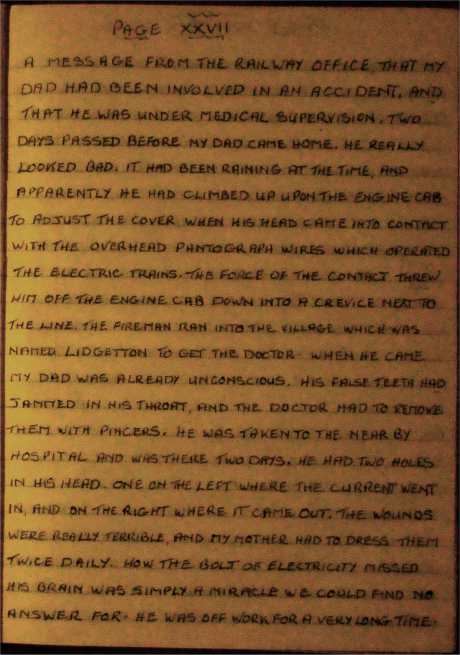 PAGE XXVII
A MESSAGE FROM THE RAILWAY OFFICE, THAT MY
DAD HAD BEEN INVOLVED IN AN ACCIDENT, AND
THAT HE WAS UNDER MEDICAL SUPERVISION. TWO
DAYS PASSED BEFORE MY DAD CAME HOME. HE REALLY
LOOKED BAD. IT HAD BEEN RAINING AT THE TIME, AND
APPARENTLY HE HAD CLIMBED UP UPON THE ENGINE CAB
TO ADJUST THE COVER WHEN HIS HEAD CAME INTO CONTACT
WITH THE OVERHEAD PANTOGRAPH WIRES WHICH OPERATED
THE ELECTRIC TRAINS. THE FORCE OF THE CONTACT THREW
HIM OFF THE ENGINE CAB DOWN INTO A CREVICE NEXT TO
THE LINE. THE FIREMAN RAN INTO THE VILLAGE WHICH WAS
NAMED LIDGETTON TO GET THE DOCTOR. WHEN HE CAME
MY DAD WAS ALREADY UNCONSCIOUS. HIS FALSE TEETH HAD
JAMMED IN HIS THROAT, AND THE DOCTOR HAD TO REMOVE
THEM WITH PINCERS. HE WAS TAKEN TO THE NEAR BY
HOSPITAL AND WAS THERE TWO DAYS. HE HAD TWO HOLES
IN HIS HEAD. ONE ON THE LEFT WHERE THE CURRENT WENT
IN, AND ON THE RIGHT WHERE IT CAME OUT. THE WOUNDS
WERE REALLY TERRIBLE, AND MY MOTHER HAD TO DRESS THEM
TWICE DAILY. HOW THE BOLT OF ELECTRICITY MISSED
HIS BRAIN WAS SIMPLY A MIRACLE WE COULD FIND NO
ANSWER FOR. HE WAS OFF WORK FOR A VERY LONG TIME.